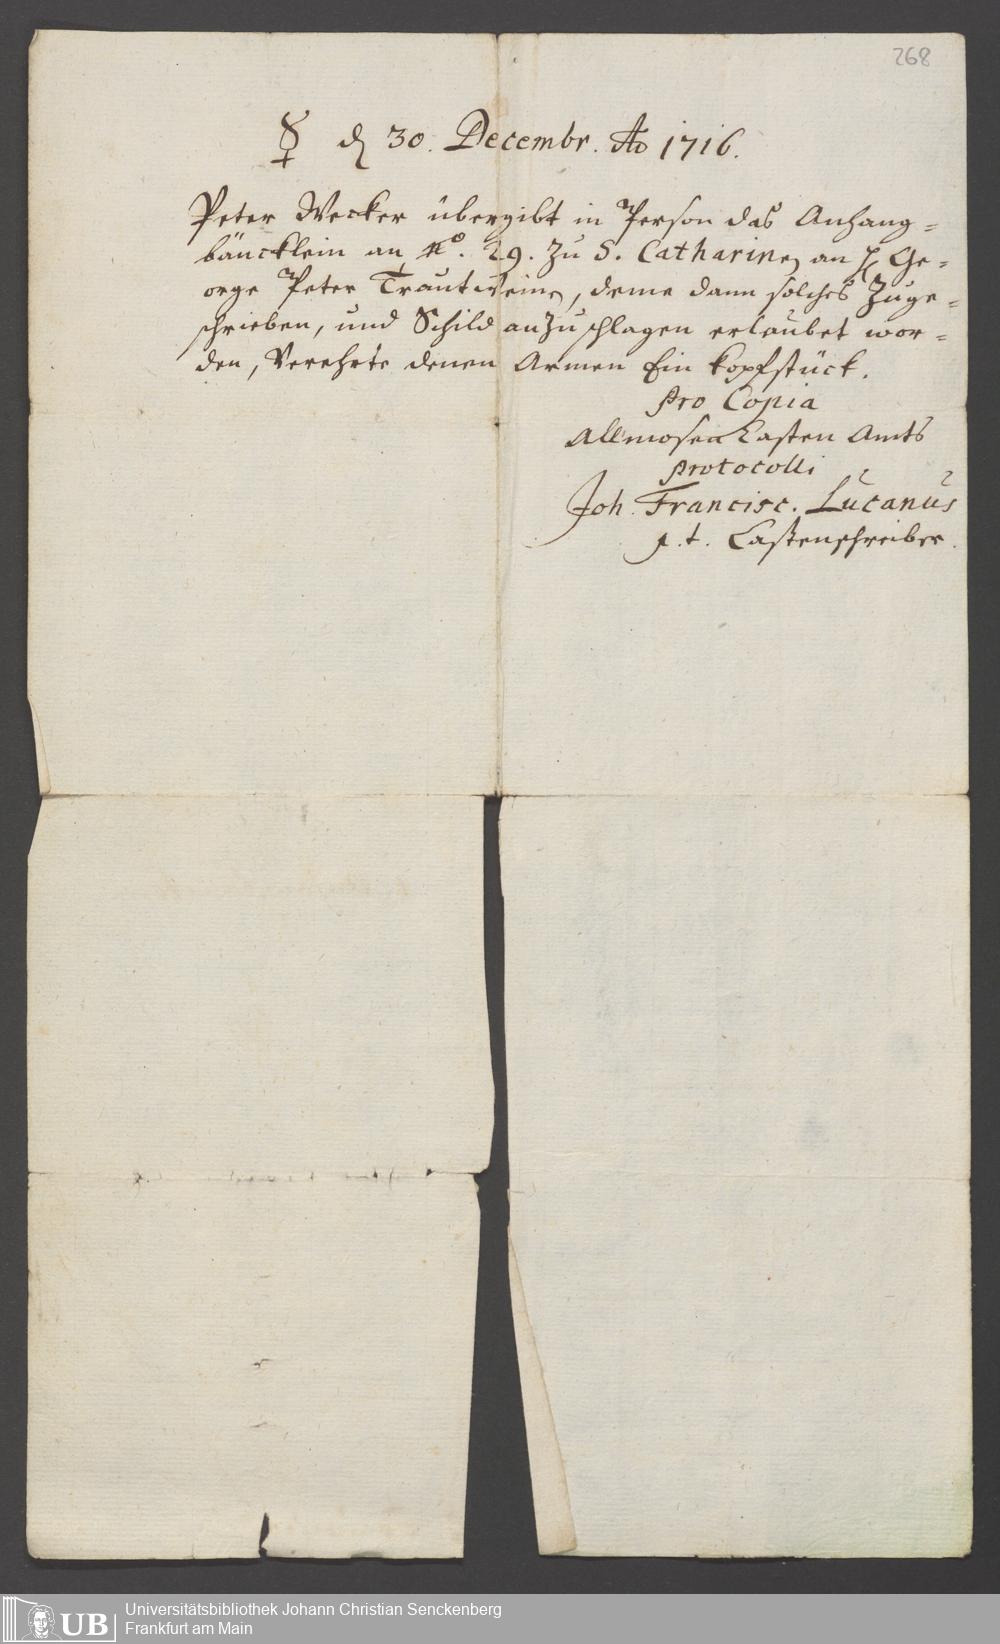 268
☿ d. 30. Decembr. Ao 1716.
Peter Wecker übergibt in Person das Anhang=
bäncklein an No. 29. Zu S. Catharinen an H. Ge=
orge Peter Trautwein, deme dann solches Zuge=
schrieben, und Schild anzuschlagen erlaubet wor=
den, Verehrte denen Armen Ein Kopfstück.
Pro Copia
Allmosen Casten Amts
Protocolli
Joh. Francisc. Lucanus
p. t. Castenschreiber.
UB
Universitätsbibliothek Johann Christian Senckenberg
Frankfurt am Main